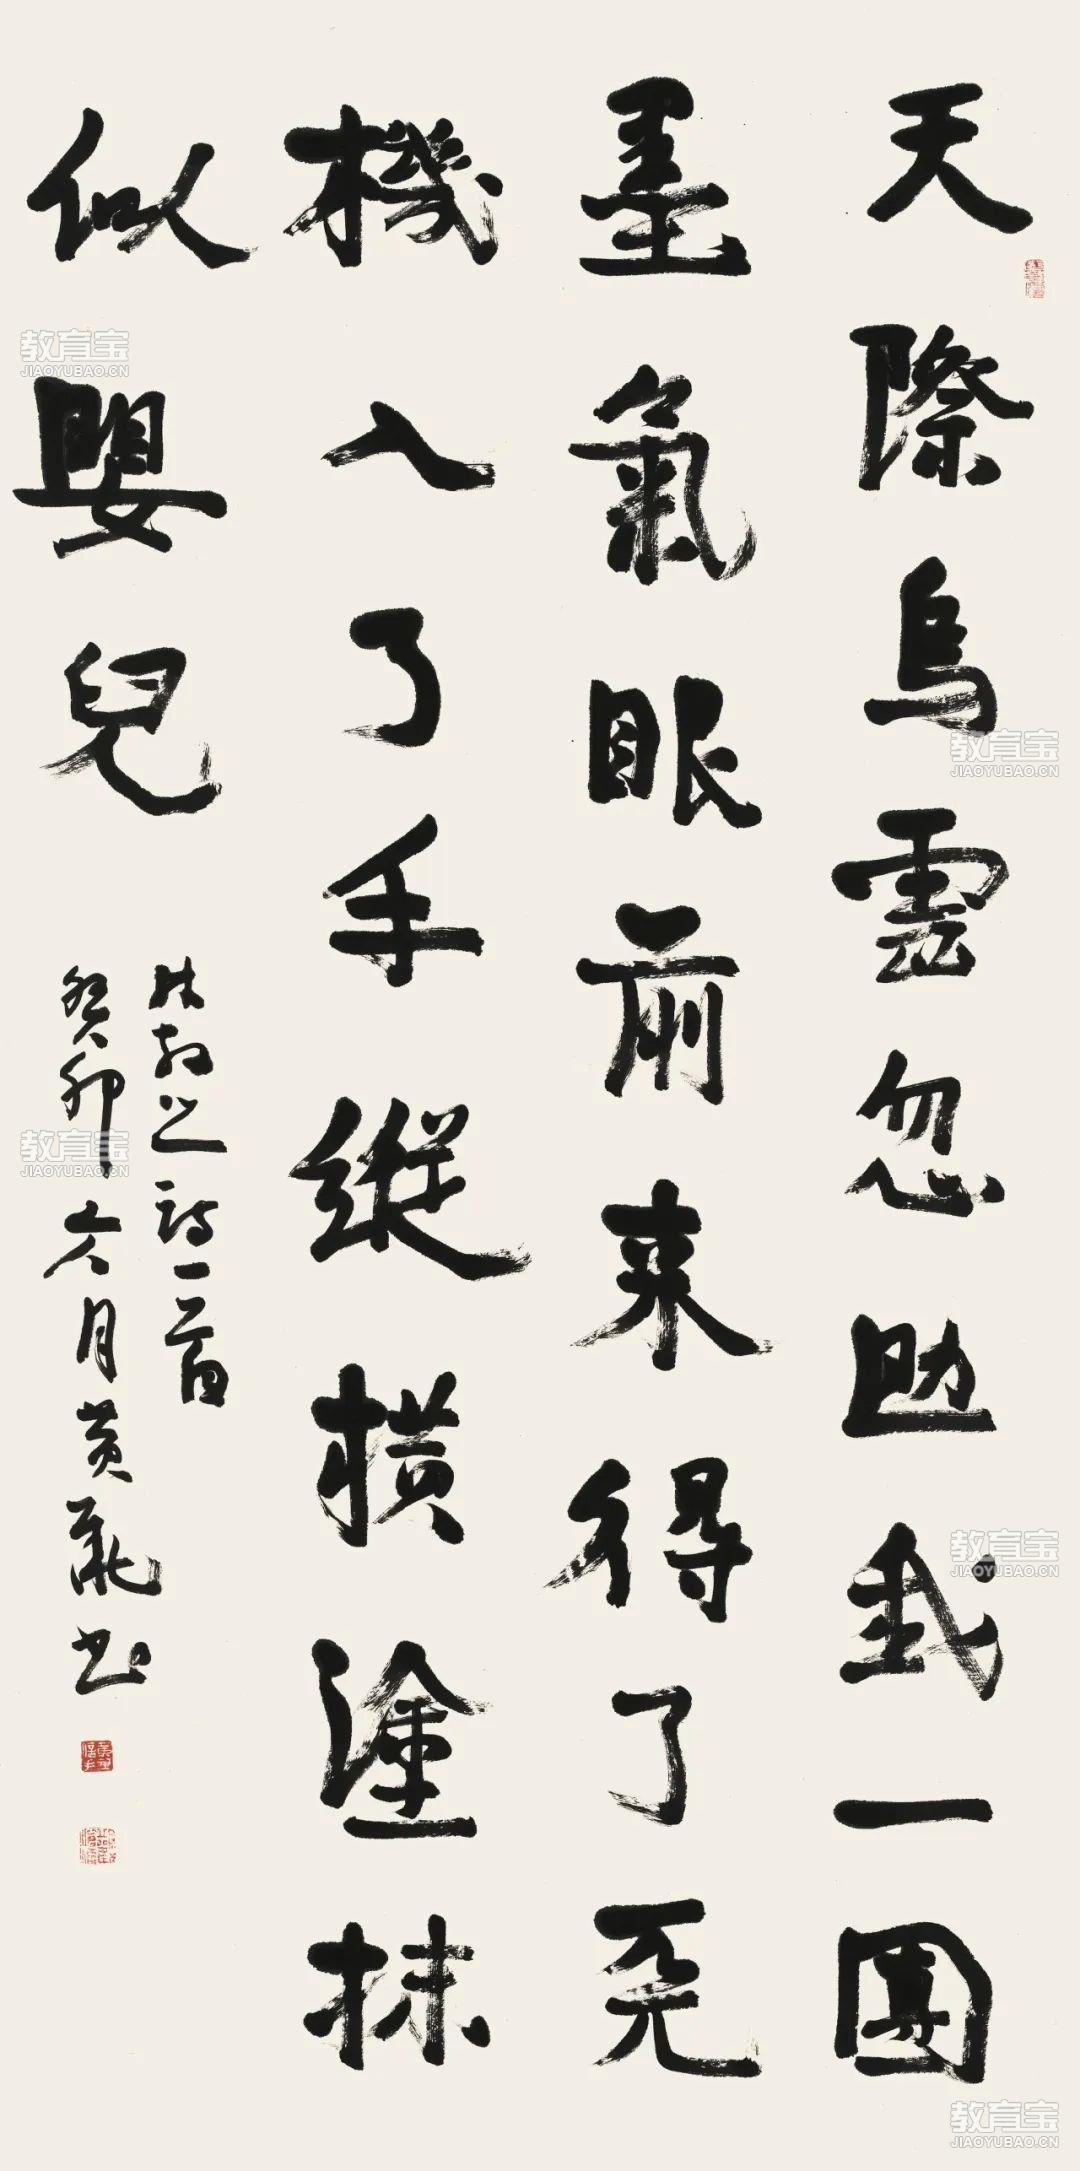 天際烏雲忽助我一團
墨氣眼前來得了天
機入了手縱橫塗抹
似嬰兒
之詩一首
癸卯六月黃書
教育宝
JIAOYUBAO.CN
教育宝
JIAOYUBAO.CN
教育宝
JIAOYUBAO.CN
教育宝
JIAOYUBAO.CN
教育宝
JIAOYUBAO.CN